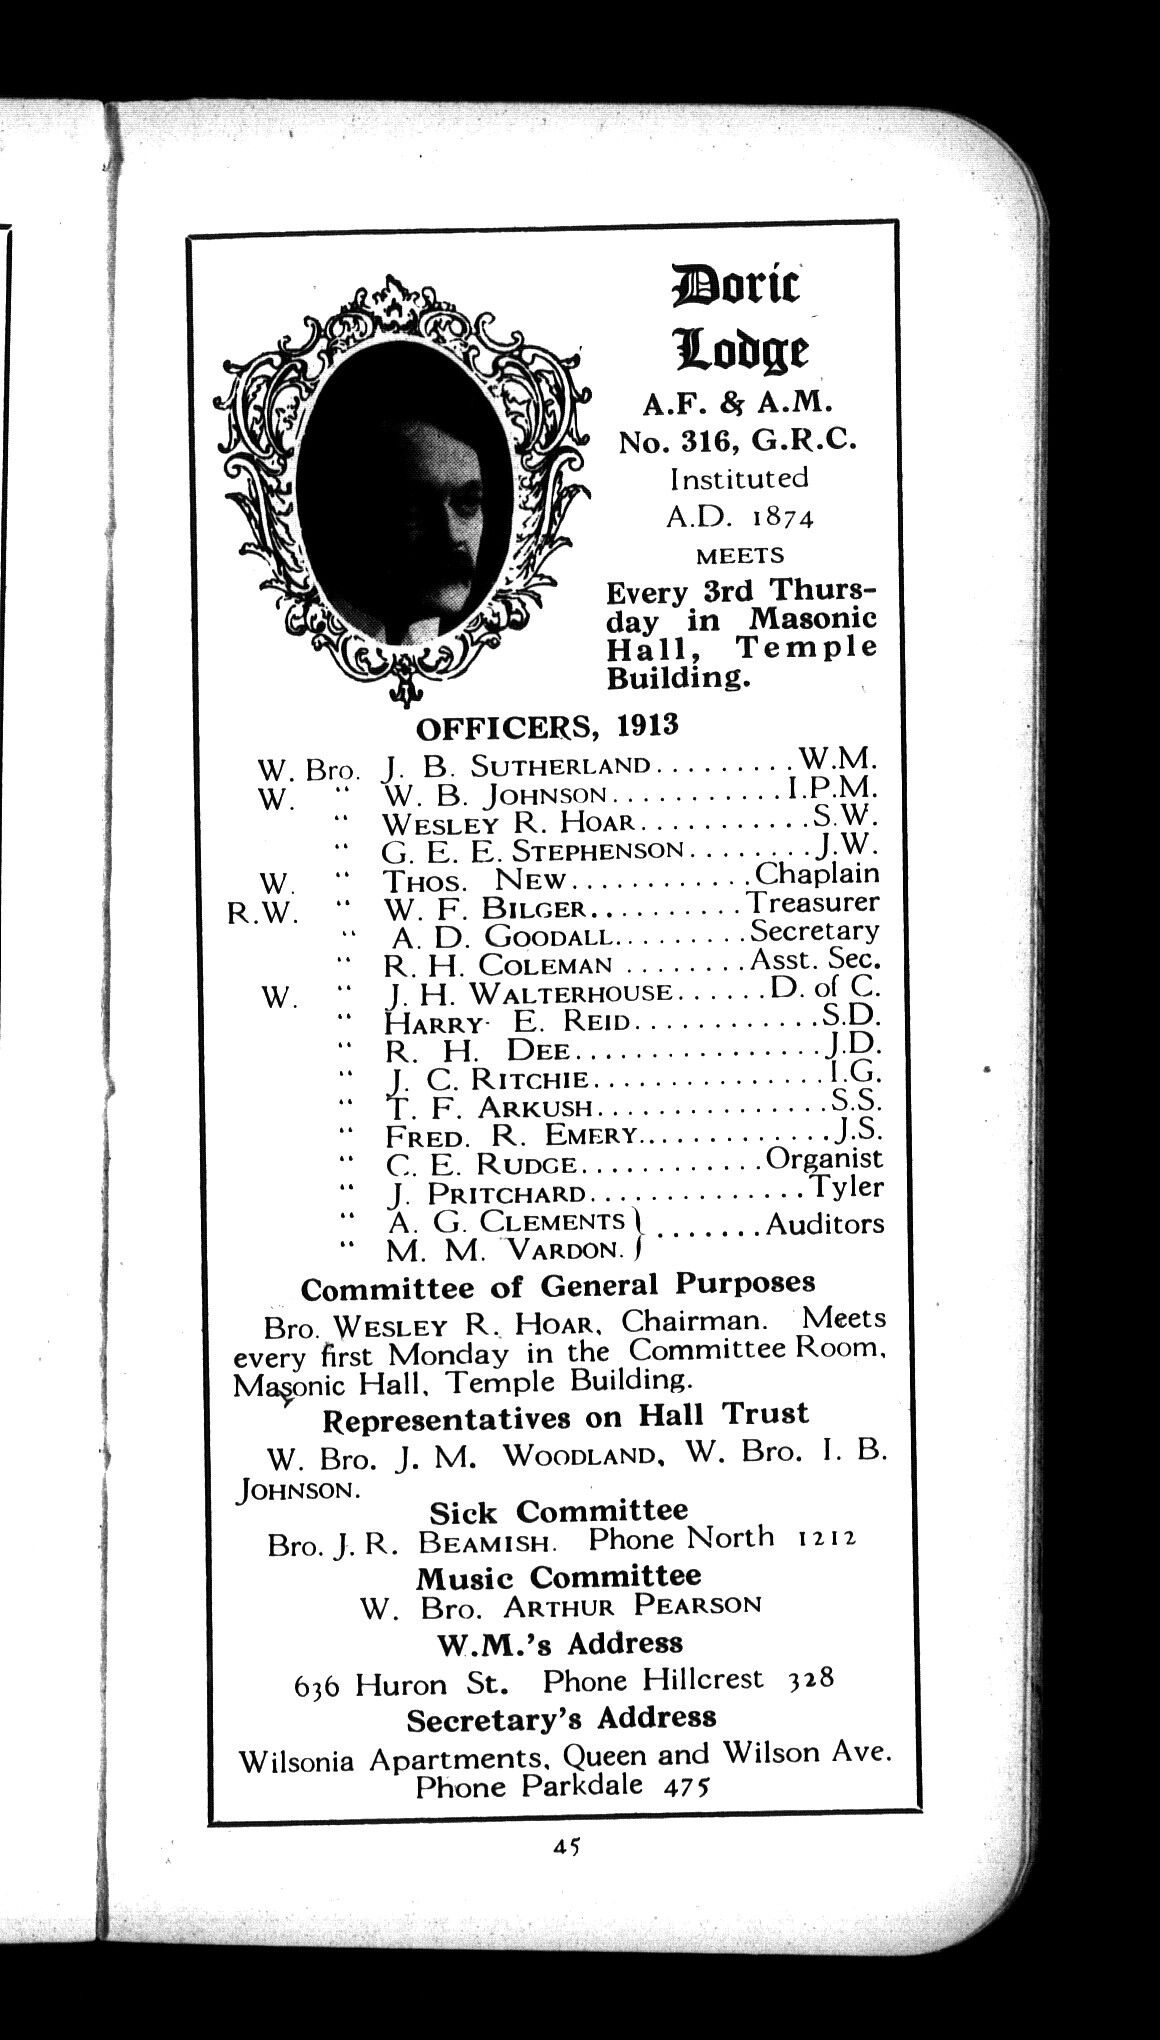 Doric
Lodge
A.F. & A.M.
No. 316, G.R.C.
Instituted
A.D. 1874
MEETS
Every 3rd Thurs-
day in Masonic
Hall, Temple
Building.
OFFICERS, 1913
W. Bro. J. B. SUTHERLAND.........W.M.
W. “ W. B. JOHNSON............I.P.M.
“ WESLEY R. HOAR...........S.W.
“ G. E. E. STEPHENSON........J.W.
W. “ THOS. NEW............Chaplain
R.W. “ W. F. BILGER..........Treasurer
“ A. D. GOODALL.........Secretary
“ R. H. COLEMAN ........Asst. Sec.
W. “ J. H. WALTERHOUSE......D. of C.
“ HARRY E. REID............S.D.
“ R. H. DEE................J.D.
“ J. C. RITCHIE...............I.G.
“ T. F. ARKUSH...............S.S.
“ FRED. R. EMERY.............J.S.
“ C. E. RUDGE............Organist
“ J. PRITCHARD..............Tyler
“ A. G. CLEMENTS } .......Auditors
“ M. M. VARDON. }
Committee of General Purposes
Bro. WESLEY R. HOAR, Chairman. Meets
every first Monday in the Committee Room,
Masonic Hall, Temple Building.
Representatives on Hall Trust
W. Bro. J. M. WOODLAND, W. Bro. I. B.
JOHNSON.
Sick Committee
Bro. J. R. BEAMISH. Phone North 1212
Music Committee
W. Bro. ARTHUR PEARSON
W.M.'s Address
636 Huron St. Phone Hillcrest 328
Secretary's Address
Wilsonia Apartments, Queen and Wilson Ave.
Phone Parkdale 475
45